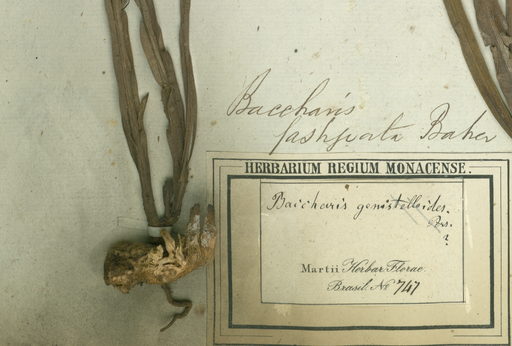 Baccharis
fastigiata Baker
HERBARIUM REGIUM MONACENSE.
Baccharis genistelloides.
Pers.
?
Martii Herbar. Florae
Brasil. No 747